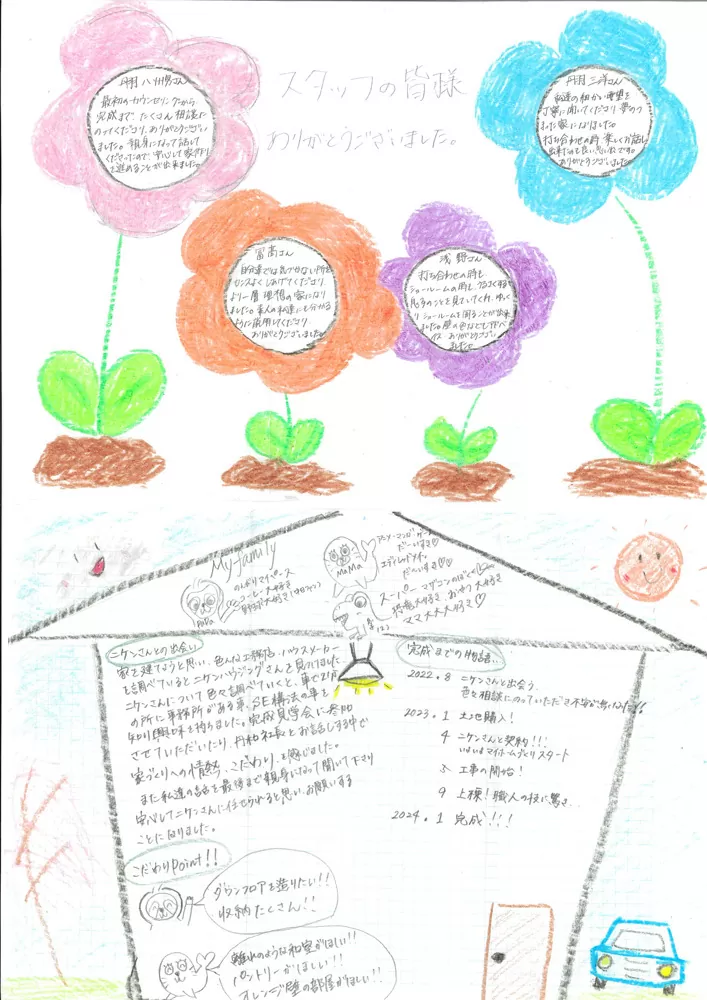 スタッフの皆様
ありがとうございました。
丹羽 八州男さん
最初のカウンセリングから
完成まで、たくさん相談に
のってくださり、ありがとうござい
ました。親身になって話して
くださったので、安心して家作り
を進めることが出来ました。
丹羽 三洋さん
私達の細かい要望を
丁寧に聞いてくださり 夢のつ
まった家になりました。
打ち合わせの時、楽しくお話し
出来たのも良い思い出です。
ありがとうございました。
冨高さん
自分達では気づけない所を
センスよくしあげてくださり、
より一層 理想の家になり
ました。素人の私達にも分かる
ように説明してくださり
ありがとうございました。
浅野さん
打ち合わせの時も
ショールームの時も、うるさくする
息子のことを見ていてくれ、ゆっく
りショールームを回ることが出来
ました。壁の色なども
ありがとうござい
ました。
My family
PaPa
のんびりマイペース
コーヒー大好き
野球大好き
MaMa
アニメ・マンガ・ゲーム
だーいすき♡
だーいすき♡♡
スーパーワンダフルのぼく
恐竜大好き、おやつ大好き
ママ大大大好き♡
ニケンさんとの出会い
家を建てようと思い、色んな工務店・ハウスメーカー
を調べているとニケンハウジングさんを見つけました
ニケンさんについて色々調べていくと、車で2分
の所に事務所がある事、SE構法の事を
知り興味を持ちました。完成見学会に参加
させていただいたり、丹羽社長とお話しする中で
家づくりへの情熱、こだわりを感じました。
また私達の話を最後まで親身になって聞いて下さり
安心してニケンさんに任せられると思い、お願いする
ことになりました。
完成までの物語..
2022.8 ニケンさんと出会う。
色々相談にのっていただき不安が無くなった!!
2023.1 土地購入!
4 ニケンさんと契約!!!
いよいよマイホームづくりスタート
5 工事の開始!
9 上棟!職人の技に驚き
2024.1 完成!!!
こだわりPoint!!
ダウンフロアを造りたい!!
収納たくさん!!
離れのような和室がほしい!!
パントリーがほしい!!
オレンジ壁の部屋がほしい!!